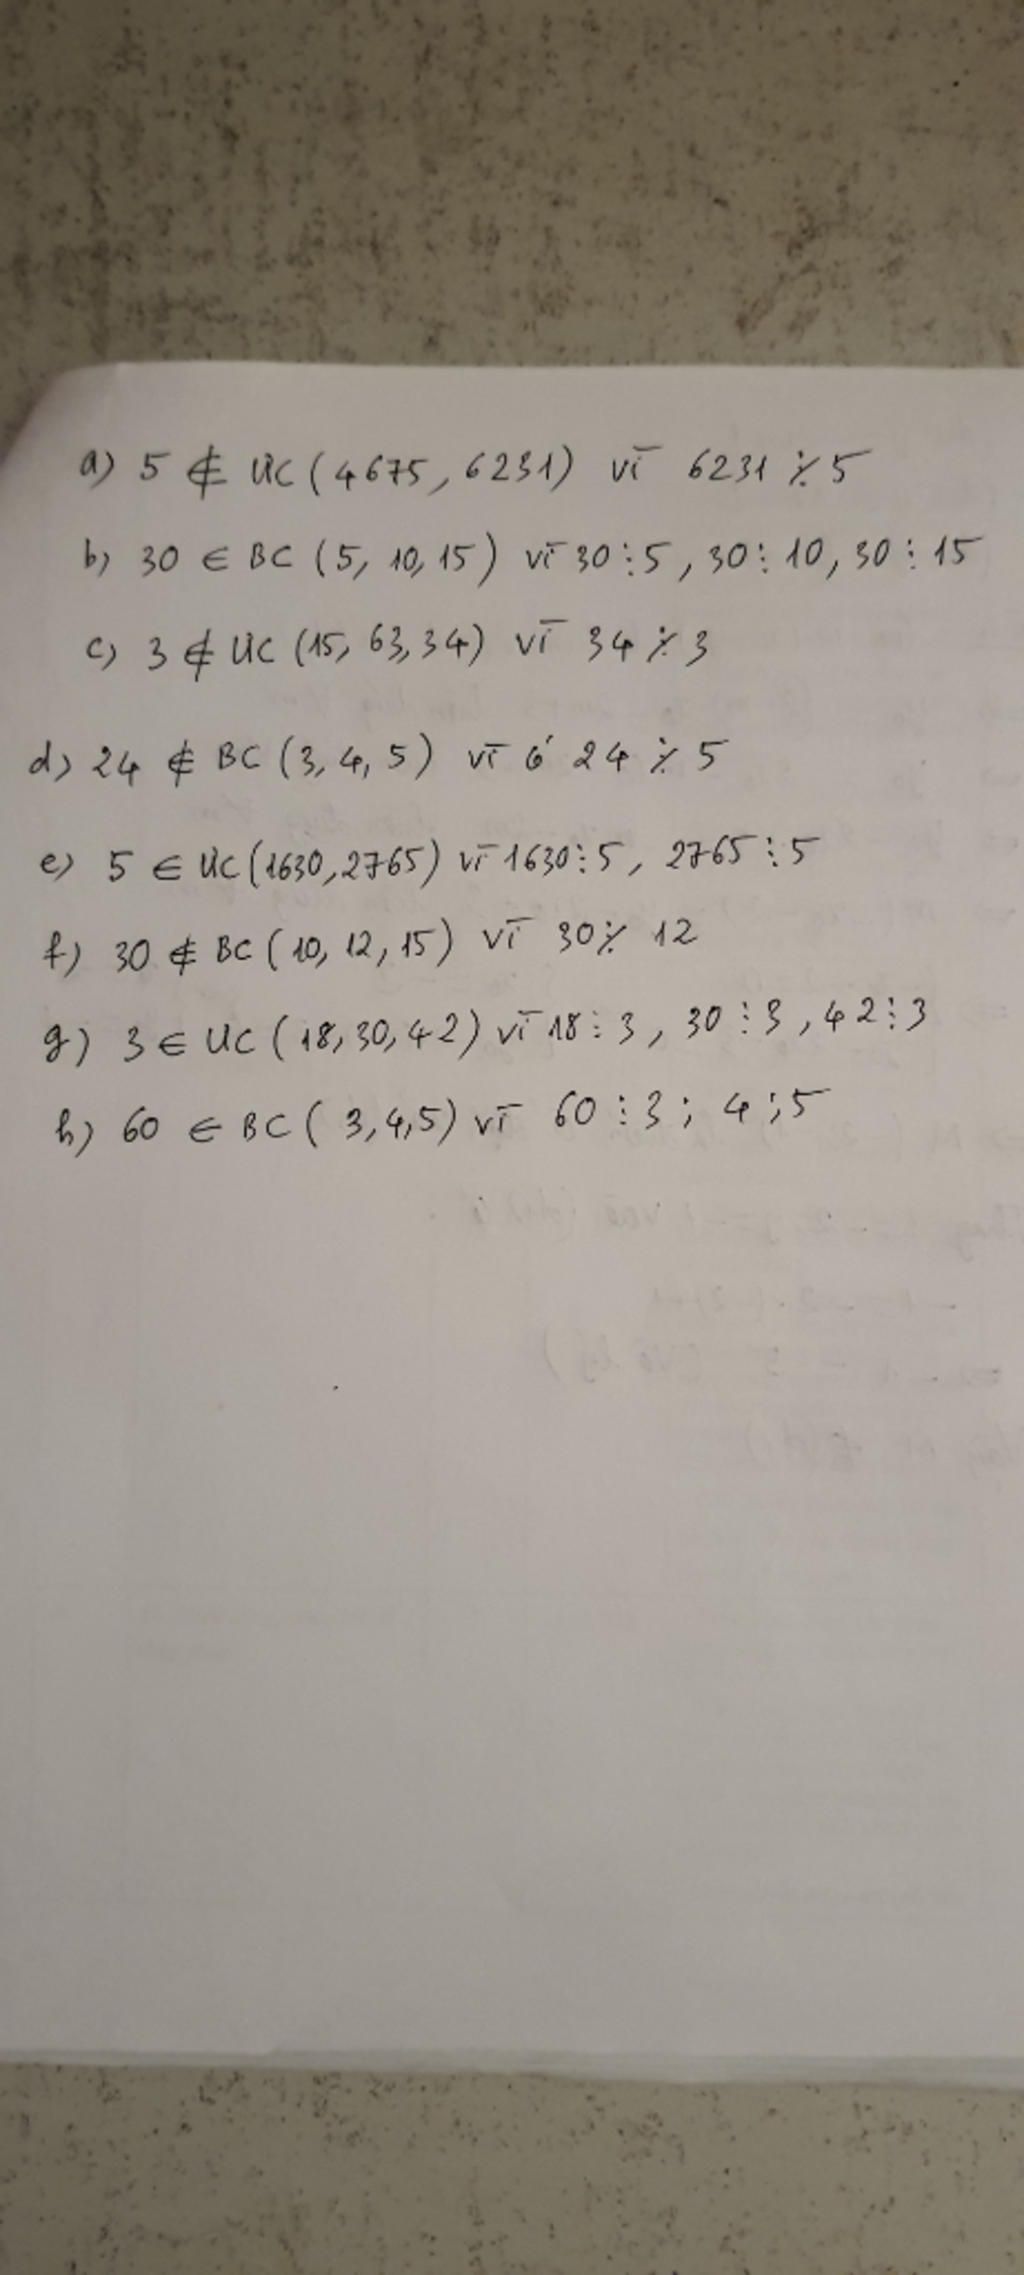 a) 5 ∉ ƯC (4675, 6231) vì 6231 ⋮̸ 5
b) 30 ∈ BC (5, 10, 15) vì 30 ⋮ 5, 30 ⋮ 10, 30 ⋮ 15
c) 3 ∉ ƯC (15, 63, 34) vì 34 ⋮̸ 3
d) 24 ∉ BC (3, 4, 5) vì 24 ⋮̸ 5
e) 5 ∈ ƯC (1630, 2765) vì 1630 ⋮ 5, 2765 ⋮ 5
f) 30 ∉ BC (10, 12, 15) vì 30 ⋮̸ 12
g) 3 ∈ ƯC (18, 30, 42) vì 18 ⋮ 3, 30 ⋮ 3, 42 ⋮ 3
h) 60 ∈ BC (3, 4, 5) vì 60 ⋮ 3; 4; 5